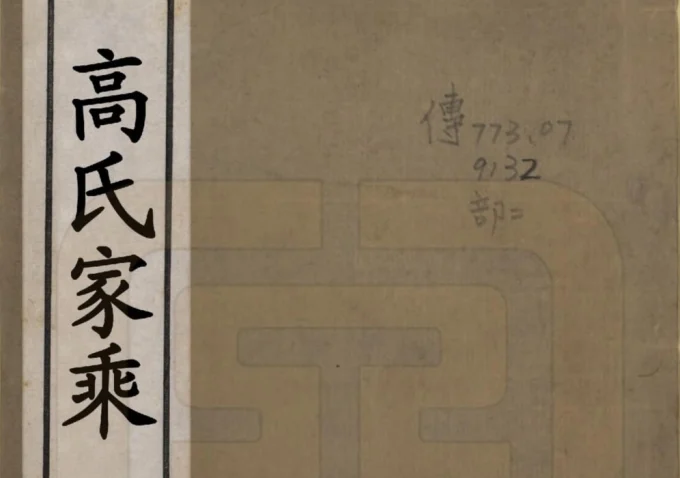 高氏家乘
傳773.07
9132
部二